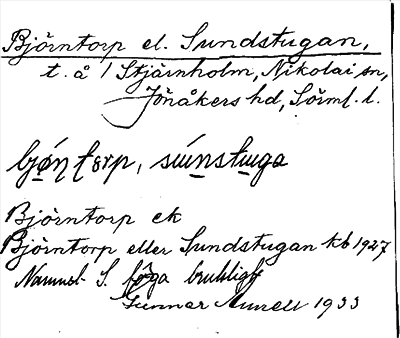 Björntorp el. Sundstugan,
t. å / Stjärnholm, Nikolai sn,
Jönåkers hd, Sörml. l.
bjǿn̩ torp, sún̠stu̠ga
Björntorp ek
Björntorp eller Sundstugan kb 1927
Namnet S. föga brukligt
Gunnar Aurell 1933